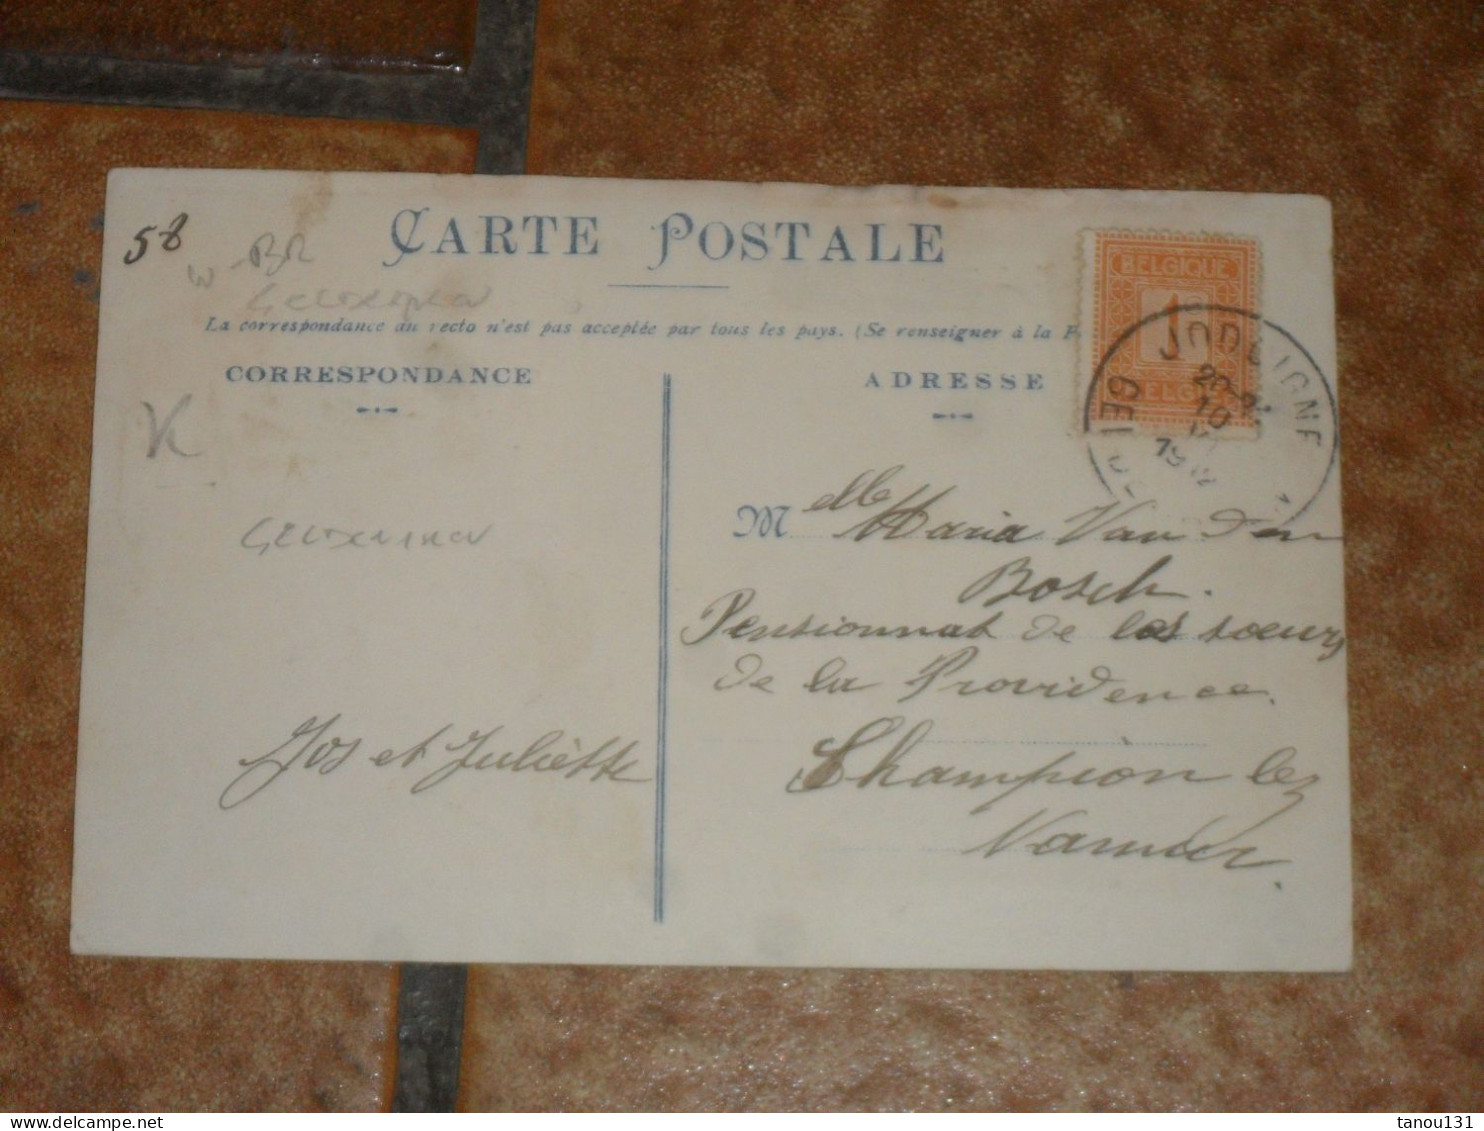 58
BR
CARTE POSTALE
La correspondance au recto n'est pas acceptée par tous les pays. (Se renseigner à la P
CORRESPONDANCE
ADRESSE
BELGIQUE
1
BELGIË
JODOIGNE
GELDENAKEN
10
Melle Maria Van den
Bosch.
Pensionnat de les soeurs
de la Providence.
Champion lez
Namur.
Jos et Juliètte
tanou131